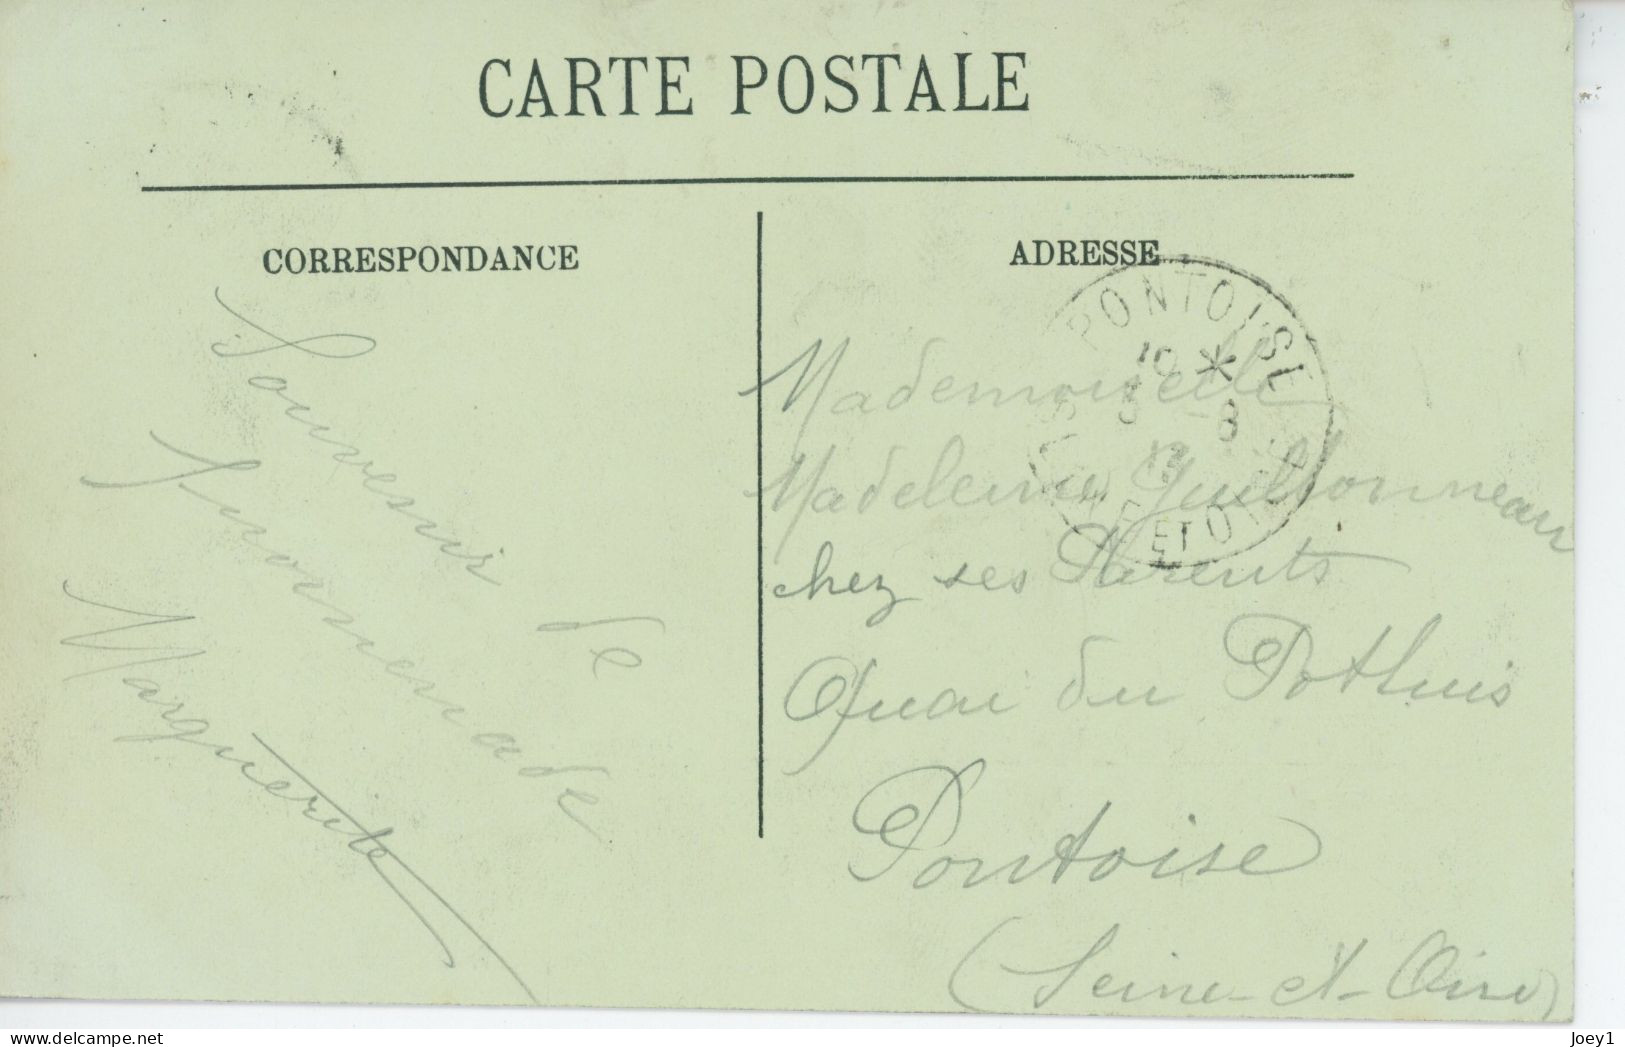 CARTE POSTALE
CORRESPONDANCE
Souvenir de
promenade
Marguerite
ADRESSE
PONTOISE
SEINE ET OISE
Mademoiselle
Madeleine Guillonneau
chez ses Parents
Quai du Pothuis
Pontoise
(Seine-et-Oise)
delcampe.net
Joey1